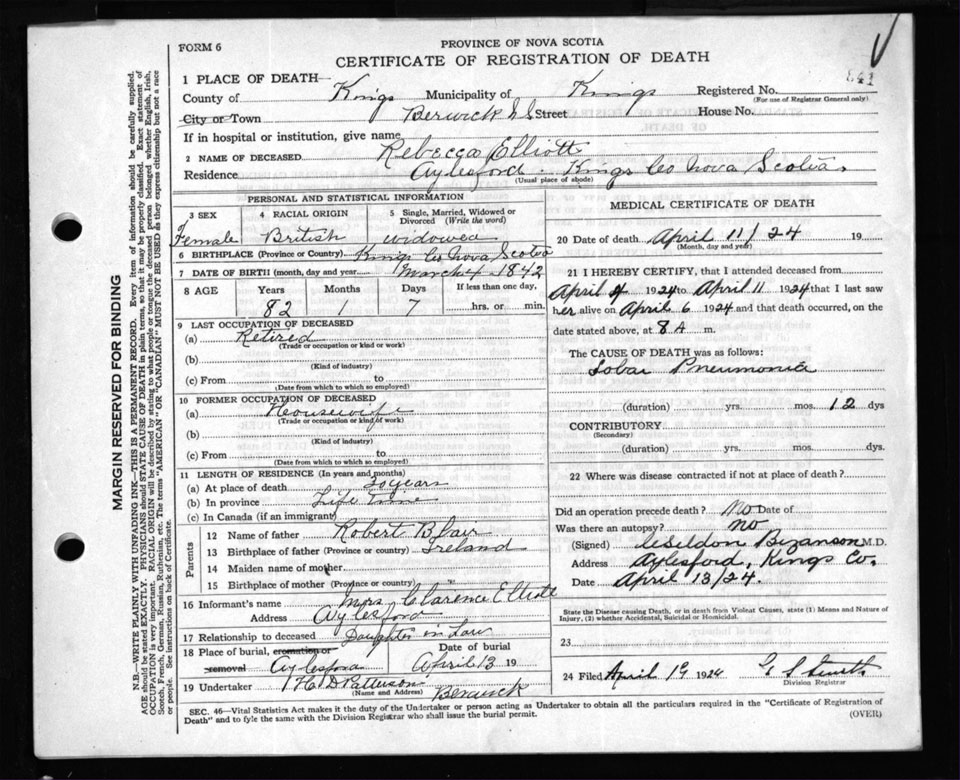 FORM 6
PROVINCE OF NOVA SCOTIA
CERTIFICATE OF REGISTRATION OF DEATH
841
1 PLACE OF DEATH—
County of Kings Municipality of Kings Registered No.
(For use of Registrar General only)
City or Town Berwick N S Street House No.
If in hospital or institution, give name
2 NAME OF DECEASED Rebecca Elliott
Residence Aylesford Kings Co Nova Scotia
(Usual place of abode)
PERSONAL AND STATISTICAL INFORMATION
3 SEX 4 RACIAL ORIGIN 5 Single, Married, Widowed or Divorced (Write the word)
Female British widowed
6 BIRTHPLACE (Province or Country) Kings Co Nova Scotia
7 DATE OF BIRTH (month, day and year) March 4 1842
8 AGE Years Months Days If less than one day,
82 1 7 hrs. or min.
9 LAST OCCUPATION OF DECEASED
(a) Retired
(Trade or occupation or kind of work)
(b)
(Kind of industry)
(c) From to
(Date from which to which so employed)
10 FORMER OCCUPATION OF DECEASED
(a) Housewife
(Trade or occupation or kind of work)
(b)
(Kind of industry)
(c) From to
(Date from which to which so employed)
11 LENGTH OF RESIDENCE (In years and months)
(a) At place of death years
(b) In province Life Time
(c) In Canada (if an immigrant)
Parents
12 Name of father Robert Blair
13 Birthplace of father (Province or country) Ireland
14 Maiden name of mother
15 Birthplace of mother (Province or country) "
16 Informant's name Mrs Clarence Elliott
Address Aylesford
17 Relationship to deceased Daughter in Law
18 Place of burial, cremation or removal Aylesford
Date of burial April 13 19
19 Undertaker H D Patterson Berwick
(Name and Address)
MEDICAL CERTIFICATE OF DEATH
20 Date of death April 11/24 19
(Month, day and year)
21 I HEREBY CERTIFY, that I attended deceased from
April 4 1924 to April 11 1924 that I last saw
her alive on April 6 1924 and that death occurred, on the
date stated above, at 8 A. m.
The CAUSE OF DEATH was as follows:
Lobar Pneumonia
(duration) yrs. mos. 12 dys
CONTRIBUTORY
(Secondary)
(duration) yrs. mos. dys.
22 Where was disease contracted if not at place of death?
Did an operation precede death? No Date of
Was there an autopsy? no
(Signed) Bezanson M.D.
Address Aylesford, Kings Co.
Date April 13/24.
State the Disease causing Death, or in death from Violent Causes, state (1) Means and Nature of
Injury, (2) whether Accidental, Suicidal or Homicidal.
23
24 Filed April 19 1924
Division Registrar
SEC. 46—Vital Statistics Act makes it the duty of the Undertaker or person acting as Undertaker to obtain all the particulars required in the "Certificate of Registration of
Death" and to fyle the same with the Division Registrar who shall issue the burial permit. (OVER)
MARGIN RESERVED FOR BINDING
N.B.—WRITE PLAINLY WITH UNFADING INK—THIS IS A PERMANENT RECORD. Every item of information should be carefully supplied.
AGE should be stated EXACTLY. PHYSICIANS should STATE CAUSE OF DEATH in plain terms, so that it may be properly classified. Exact statement of
OCCUPATION is very important. RACIAL ORIGIN will be described by stating to what people or tongue the deceased person belonged whether English, Irish,
Scotch, French, German, Russian, Ruthenian, etc. The terms "AMERICAN" or "CANADIAN" MUST NOT BE USED as they express citizenship but not a race
or people. See instructions on back of Certificate.